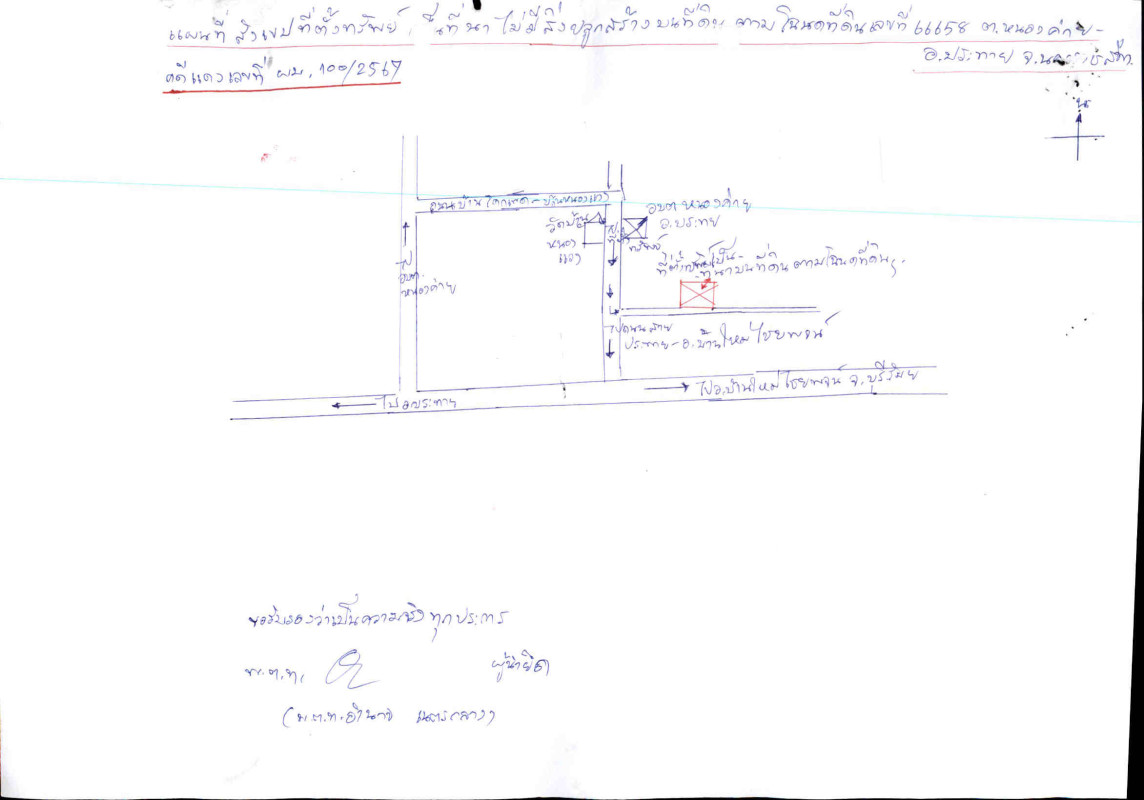 แผนที่ สังเขปที่ตั้งทรัพย์, ที่นา ไม่มีสิ่งปลูกสร้างบนที่ดิน ตามโฉนดที่ดินเลขที่ 66658 ต.หนองค่าย-
อ.ประทาย จ.
คดีแดงเลขที่ ผบ. 100/2567
น
ถนนบ้าน - บ้านหนองแวง
วัดบ้าน
หนอง
แวง
อบต หนองค่าย
อ.ประทาย
ที่ตั้งทรัพย์เป็น-
ที่นาบนที่ดิน ตามโฉนดที่ดินฯ
ไป
อบต.
หนองค่าย
ไปถนนสาย
ประทาย - อ.บ้านใหม่ไชยพจน์
ไปอ.บ้านใหม่ไชยพจน์ จ.บุรีรัมย์
ไปอ.ประทาย
ขอรับรองว่าเป็นความจริงทุกประการ
พ.ต.ท. ผู้นำยึด
(พ.ต.ท.อำนาจ)